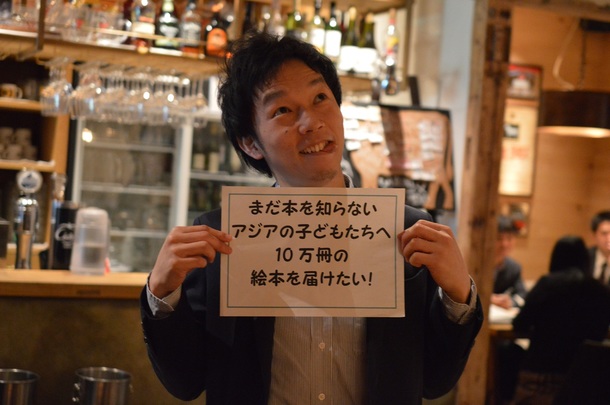 まだ本を知らない
アジアの子どもたちへ
10万冊の
絵本を届けたい!